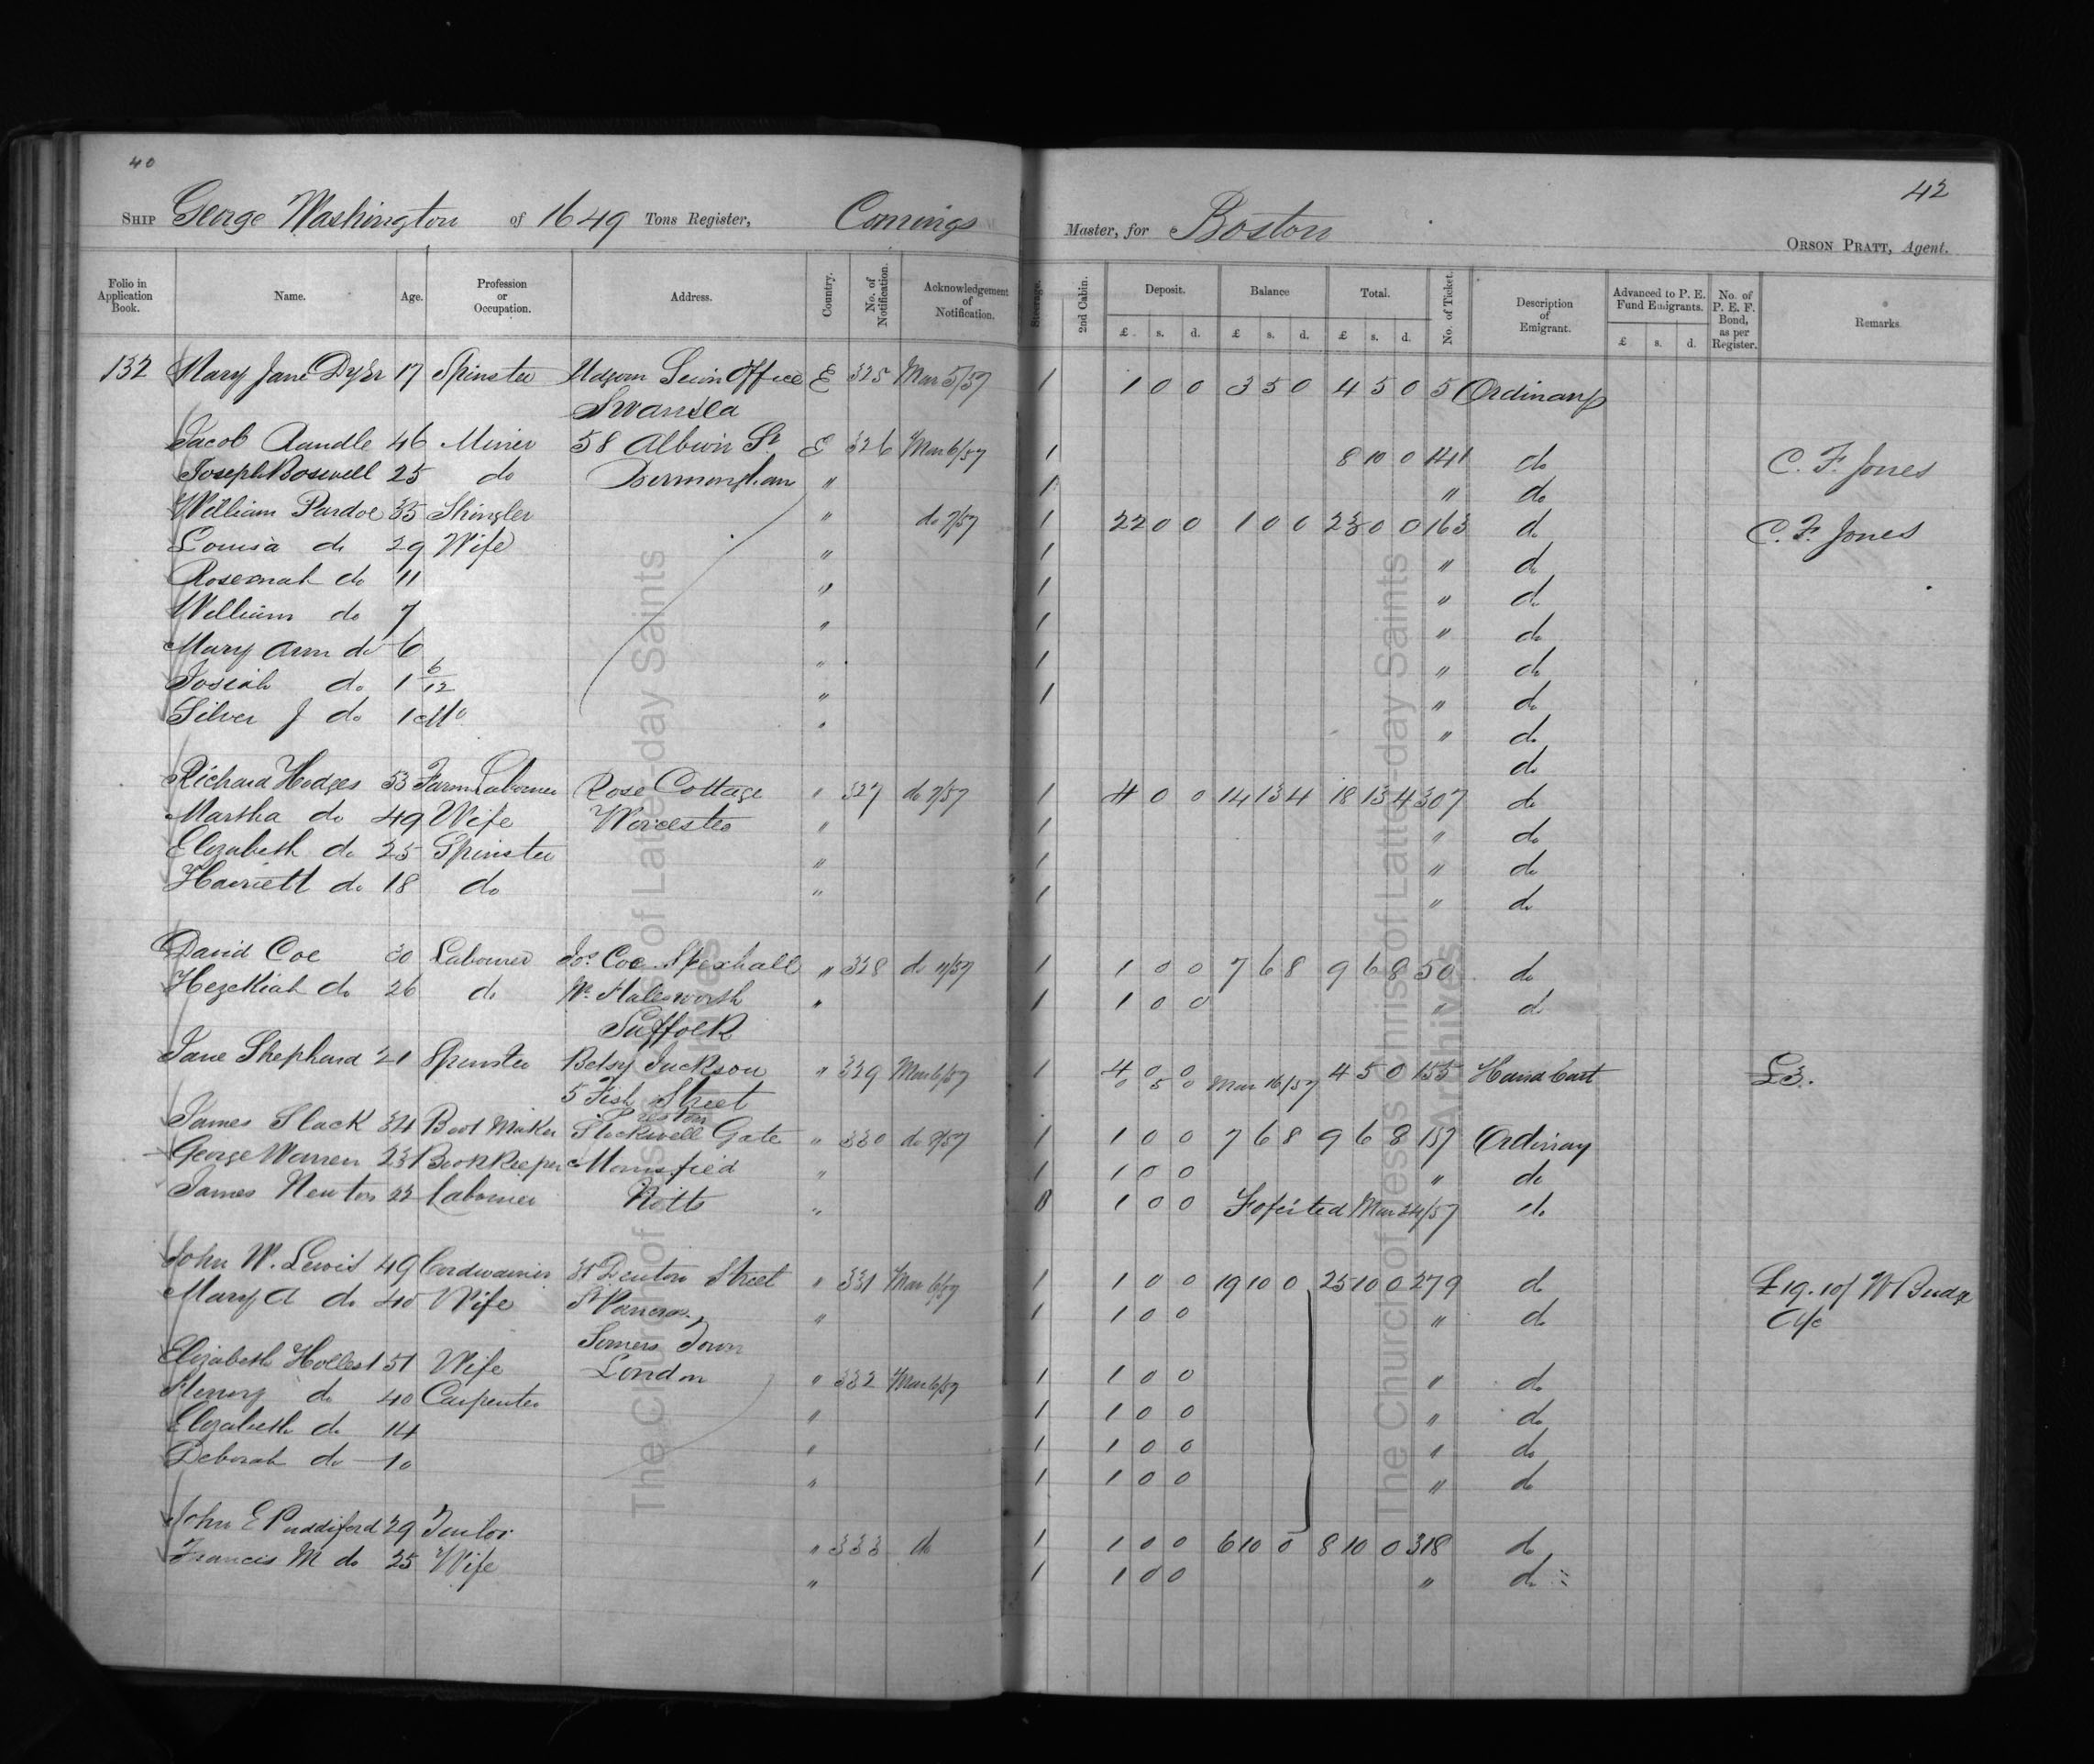 40
42
SHIP George Washington of 1649 Tons Register, Comings Master, for Boston
ORSON PRATT, Agent.
Folio in Application Book. Name. Age. Profession or Occupation. Address. Country. No. of Notification. Acknowledgement of Notification. Steerage. 2nd Cabin. Deposit. Balance Total. No. of Ticket. Description of Emigrant. Advanced to P. E. Fund Emigrants. No. of P. E. F. Bond, as per Register. Remarks.
£ s. d. £ s. d. £ s. d. £ s. d.
132 Mary Jane Dyer 17 Spinster Office E 325 Mar 5/57 1 1 0 0 3 5 0 4 5 0 5 Ordinary
Swansea
Jacob Randle 46 Miner 58 Albion St E 326 Mar 6/57 1 8 10 0 141 do C. F. Jones
Joseph Boswell 25 do Birmingham " 1 " do
William Pardoe 35 Shingler " do 7/57 1 22 0 0 1 0 0 23 0 0 163 do C. F. Jones
Louisa do 29 Wife " 1 " do
Rosennah do 11 " 1 " do
William do 7 " 1 " do
Mary Ann do 6 " 1 " do
Josiah do 1 6/12 " 1 " do
Silver J do 1 Mo " " do
do
Richard Hodges 53 Farm Labourer Rose Cottage " 327 do 7/57 1 4 0 0 14 13 4 18 13 4 307 do
Martha do 49 Wife Worcester " 1 " do
Elizabeth do 25 Spinster " 1 " do
Harriett do 18 do " 1 " do
David Coe 30 Labourer Jos. Coe Spexhall " 328 do 7/57 1 1 0 0 7 6 8 9 6 8 50 do
Hezekiah do 26 do Nr. Halesworth " 1 1 0 0 " do
Suffolk
Jane Shepherd 21 Spinster Betsy Jackson " 329 Mar 6/57 1 4 0 0 4 5 0 155 Hand Cart £3.
0 5 0 Mar 16/57
5 Fish Street
Preston
James Slack 34 Boot Maker Stockwell Gate " 330 do 7/57 1 1 0 0 7 6 8 9 6 8 157 Ordinay
George Warren 23 Bookkeeper Mansfied " 1 1 0 0 " do
James Newton 22 Labourer Notts " 1 0 0 Fofeited Mar 24/57 do
John W. Lewis 49 Cordwainer 31 Denton Street " 331 Mar 6/57 1 1 0 0 19 10 0 25 10 0 279 do £19.10/ W Budge
Mary A do 40 Wife St Pancras, " 1 1 0 0 " do a/c
Somers Town
Elizabeth Hollest 51 Wife London " 332 Mar 6/57 1 1 0 0 " do
Henery do 40 Carpenter " 1 1 0 0 " do
Elizabeth do 14 " 1 1 0 0 " do
Deborah do 10 " 1 1 0 0 " do
John E Puddiford 29 Tailor " 333 do 1 1 0 0 6 10 0 8 10 0 318 do
Francis M do 25 Wife " 1 1 0 0 " do